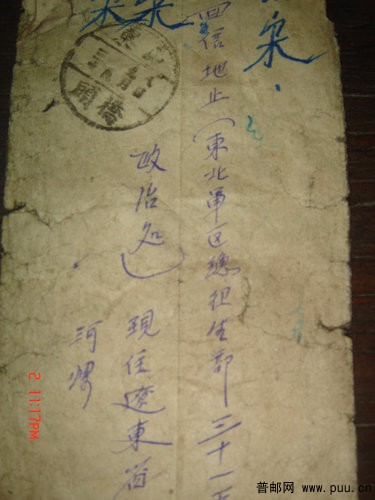 回信地止（東北軍区總生部三十一
政治处）現住遼東省
河
東
橋頭
2 11:17PM
普邮网 www.puu.cn